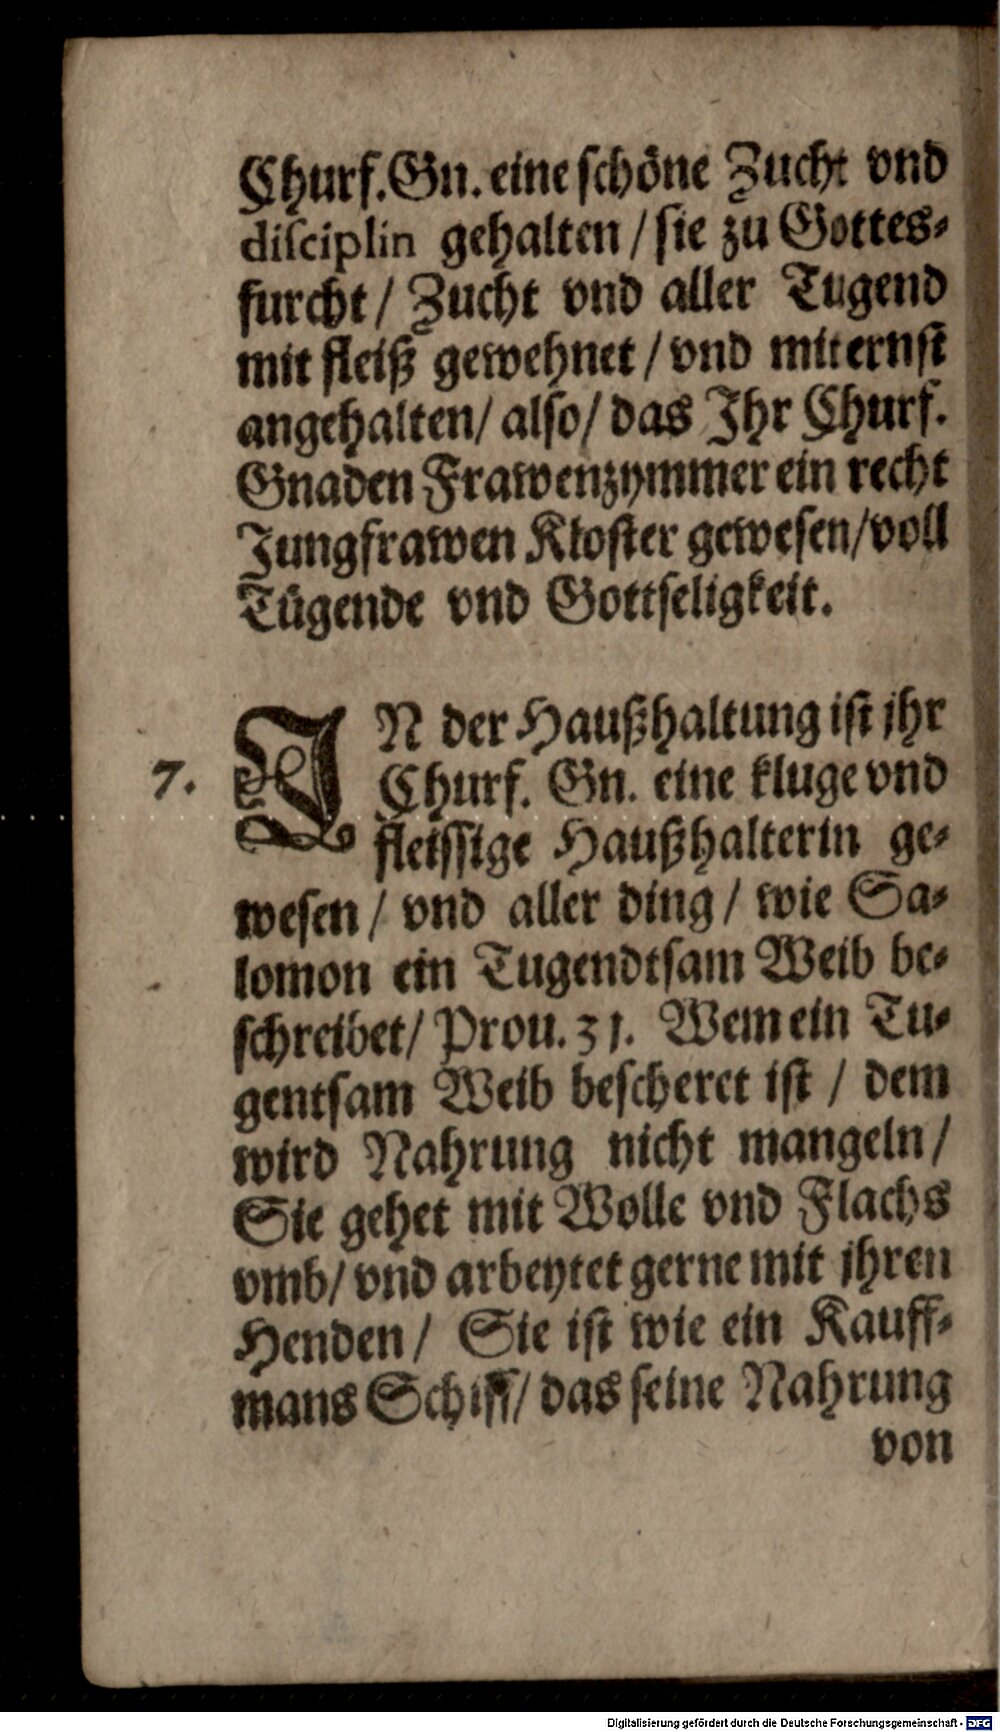 Churf. Gn. eine schöne Zucht vnd
disciplin gehalten / sie zu Gottes-
furcht / Zucht vnd aller Tugend
mit fleiß gewehnet / vnd mit ernst
angehalten / also / das Ihr Churf.
Gnaden Frawenzymmer ein recht
Jungfrawen Kloster gewesen / voll
Tügende vnd Gottseligkeit.
7.
IN der Haußhaltung ist jhr
Churf. Gn. eine kluge vnd
fleissige Haußhalterin ge-
wesen / vnd aller ding / wie Sa-
lomon ein Tugendtsam Weib be-
schreibet / Prou. 31. Wem ein Tu-
gentsam Weib bescheret ist / dem
wird Nahrung nicht mangeln /
Sie gehet mit Wolle vnd Flachs
vmb / vnd arbeytet gerne mit jhren
Henden / Sie ist wie ein Kauff-
mans Schiff / das seine Nahrung
von
Digitalisierung gefördert durch die Deutsche Forschungsgemeinschaft - DFG